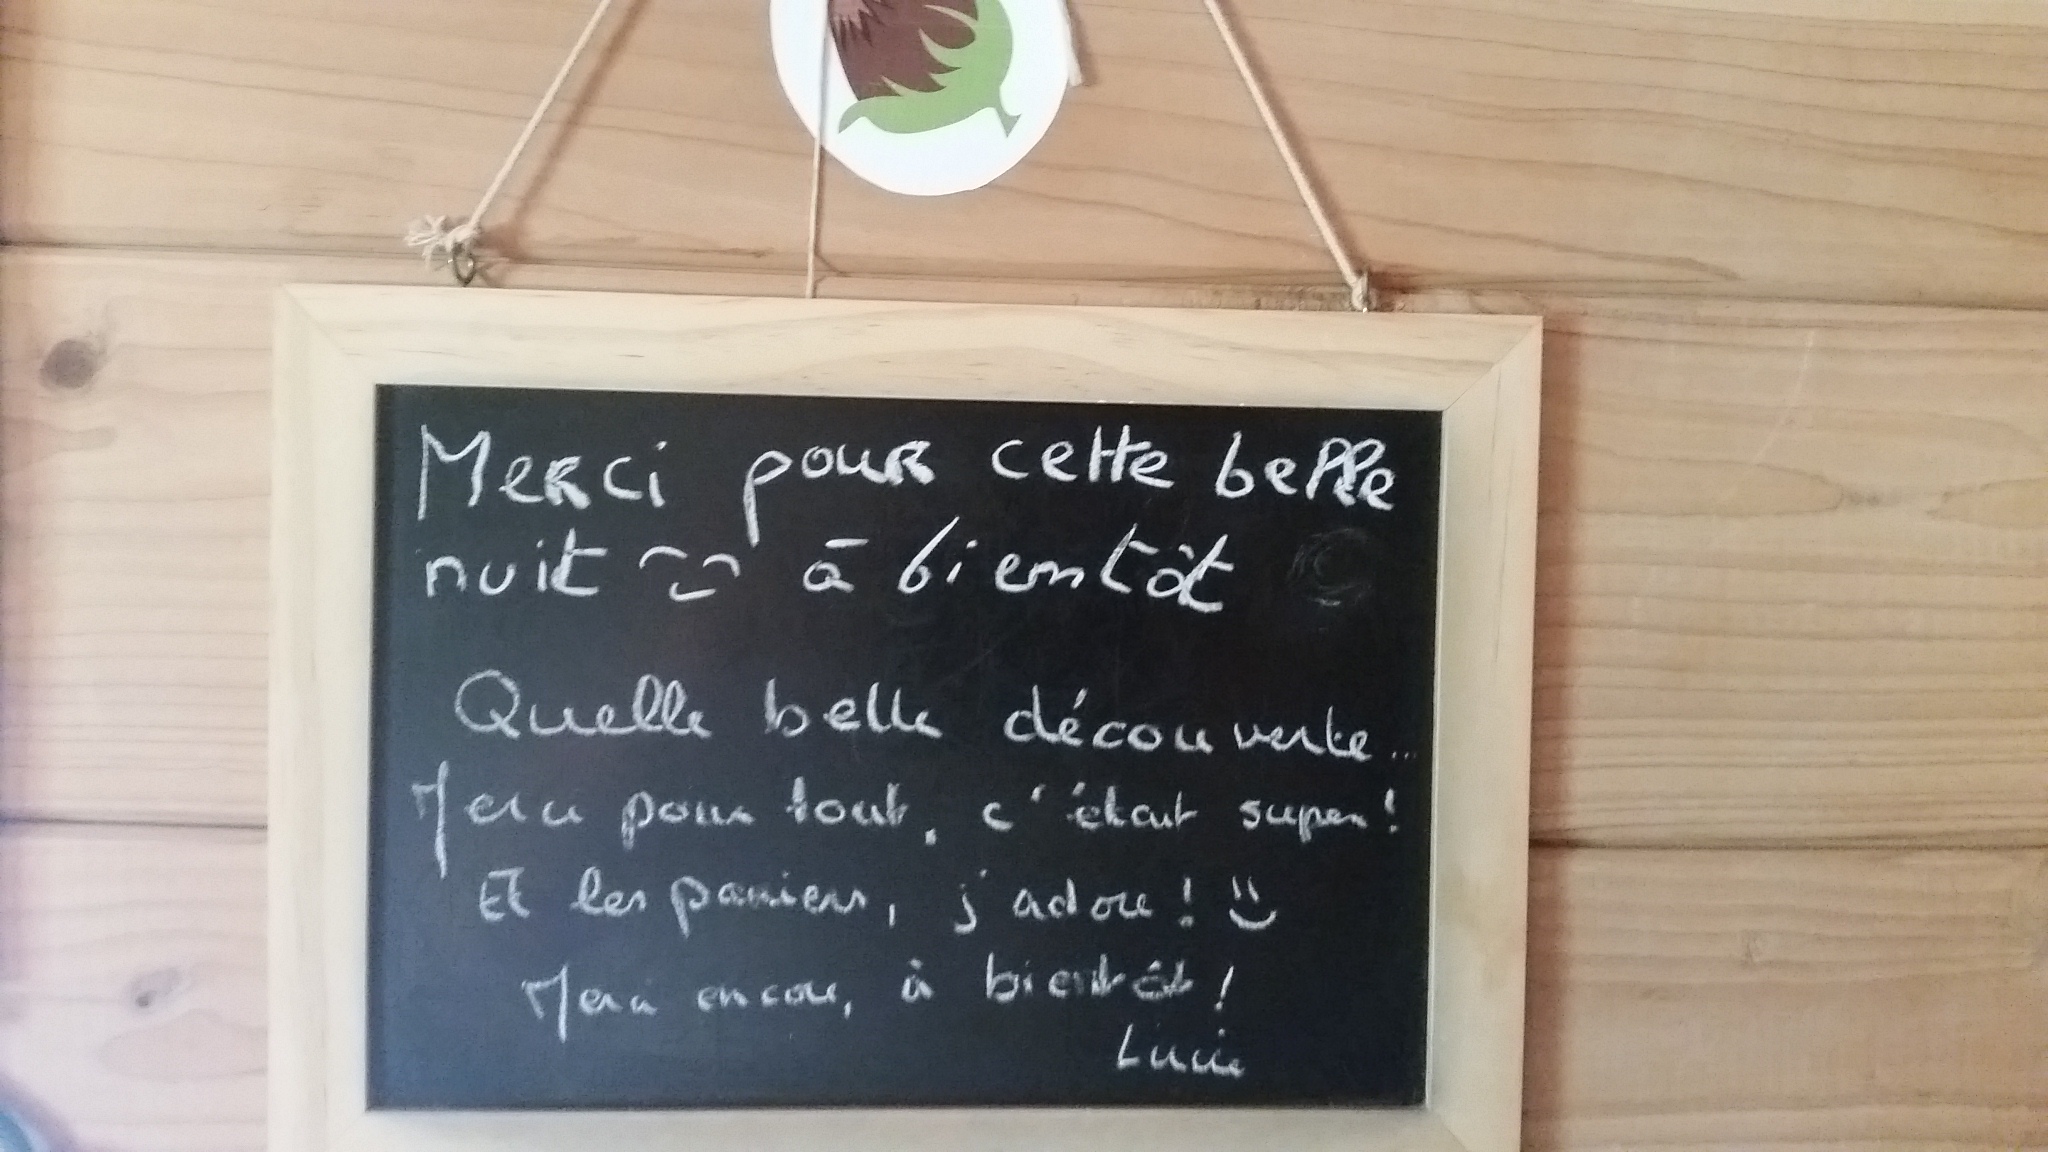 Merci pour cette belle
nuit à bientôt
Quelle belle découverte...
Merci pour tout, c'était super!
Et les paniers, j'adore!
Merci encore, à bientôt!
Lucie